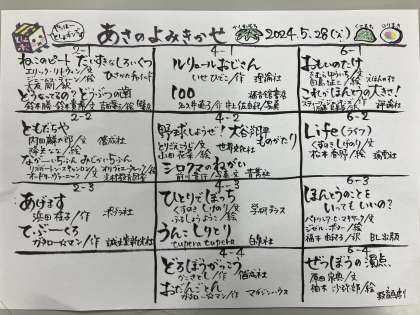 やっほー
としょかん
あさのよみきかせ 2024.5.28(火)
2-1
ねこのピート だいすきなしろいくつ
エリック・リトウィン/文
ひさかたチャイルド
どうなってるの? どうぶつの歯
2-2
ともだちや
内田麟太郎/文 偕成社
降矢なな/絵
2-3
あけます
浜田桂子/作 ポプラ社
てぶーくろ
ガタロー☆マン/作 誠文堂新光社
4-1
ルリユールおじさん
いせ ひでこ/作 理論社
100
福音館書店
名久井直子/作 井上佐由紀/写真
4-2
野球しようぜ! 大谷翔平ものがたり
とりごえこうじ/文 世界文化社
山田花菜/絵
シロクマのねがい
前川貴行/写真・文
4-3
ひとりぼっち
くすのきしげのり/文 学研プラス
ふるしょうようこ/絵
うんこしりとり
tupera tupera 白泉社
4-4
どろぼうがっこう
かこさとし/作 偕成社
おだんごとん
ガタロー☆マン/作 マガジンハウス
6-1
おもいのたけ
きむらゆういち/文
えほんの杜
これがほんとうの大きさ!
評論社
6-2
Life(ライフ)
くすのき しげのり/文
松本春野/絵 瑞雲舎
6-3
ほんとうのことを
いってもいいの?
パトリシア・C・マキサック/文
ジゼル・ポター/絵
福本友美子/訳 BL出版
6-4
ぜつぼうの濁点
原田宗典/文
柚木沙弥郎/絵 教育画劇